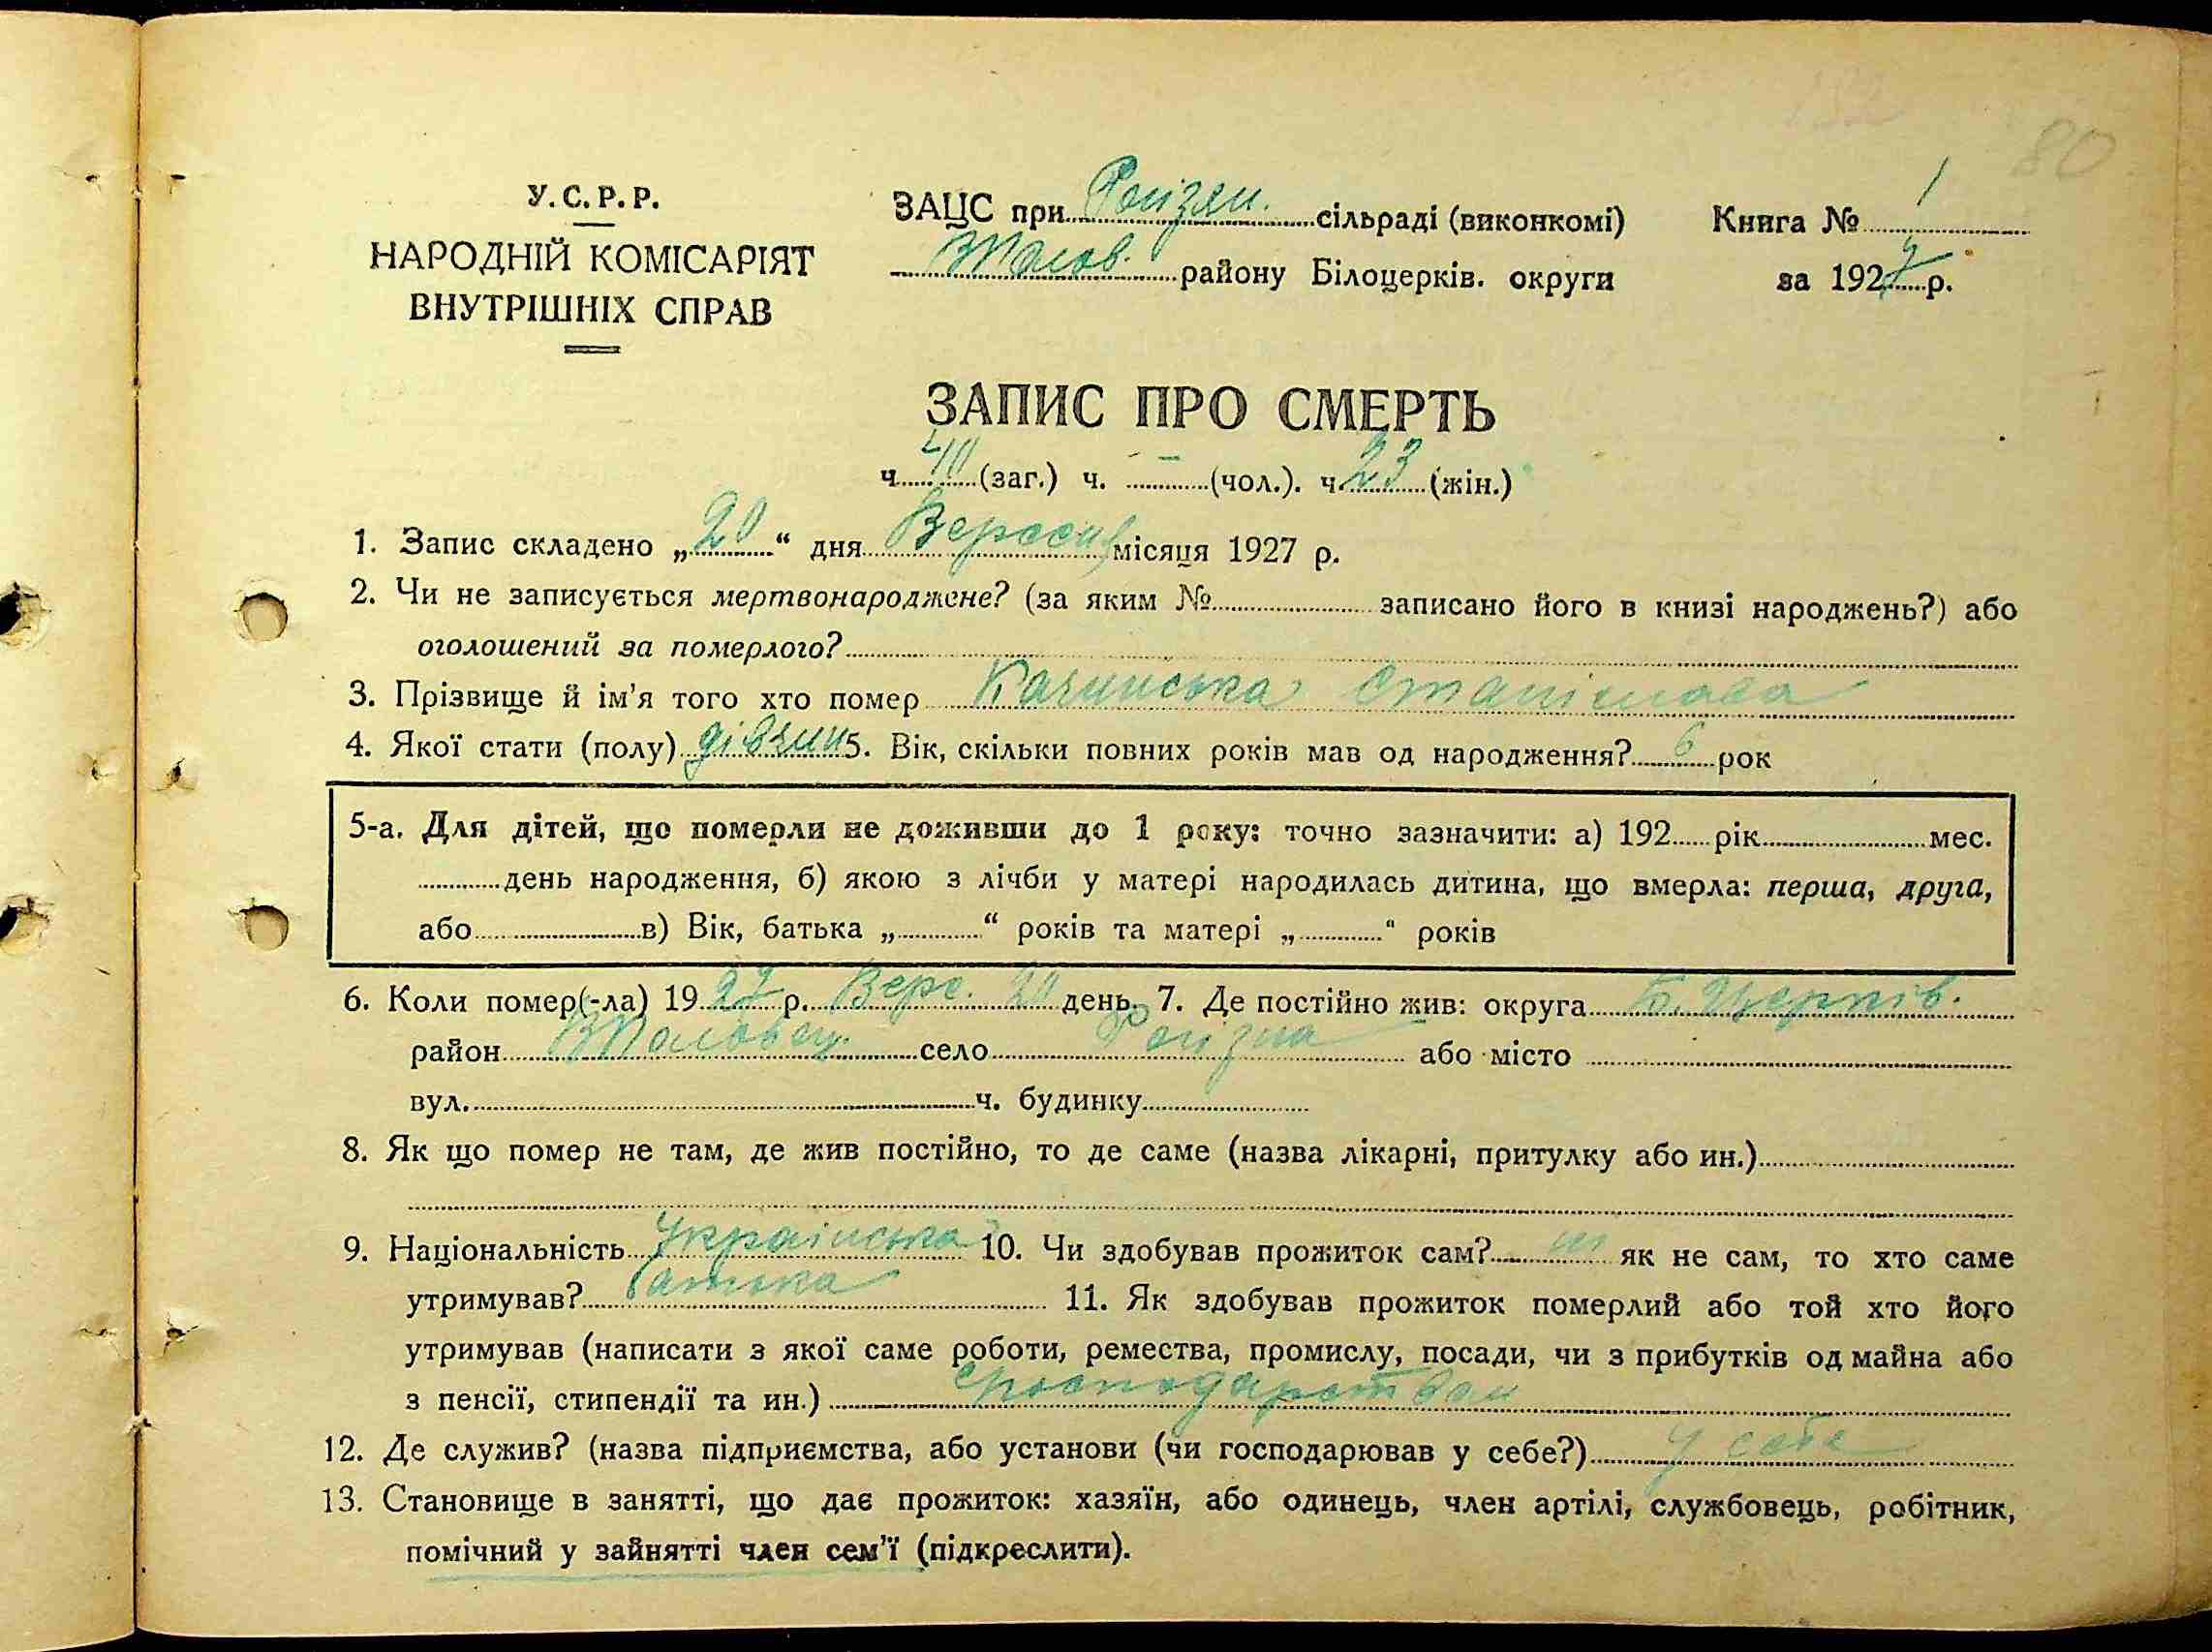 80
У. С. Р. Р.
НАРОДНІЙ КОМІСАРІЯТ
ВНУТРІШНІХ СПРАВ
ЗАЦС при сільраді (виконкомі)
району Білоцерків. округи
Книга № 1
за 1927 р.
ЗАПИС ПРО СМЕРТЬ
ч. 40 (заг.) ч. – (чол.). ч. 23 (жін.)
1. Запис складено „20“ дня Вересня місяця 1927 р.
2. Чи не записується мертвонароджене? (за яким № записано його в книзі народжень?) або
оголошений за померлого?
3. Прізвище й ім'я того хто помер Качинська Станіслава
4. Якої стати (полу) дівчин 5. Вік, скільки повних років мав од народження? 6 рок
5-а. Для дітей, що померли не доживши до 1 року: точно зазначити: а) 192 рік мес.
день народження, б) якою з лічби у матері народилась дитина, що вмерла: перша, друга,
або в) Вік, батька „ “ років та матері „ “ років
6. Коли помер(-ла) 1927 р. Верс. 20 день. 7. Де постійно жив: округа Б. Церків.
район село або місто
вул. ч. будинку
8. Як що помер не там, де жив постійно, то де саме (назва лікарні, притулку або ин.)
9. Національність Українська 10. Чи здобував прожиток сам? ні як не сам, то хто саме
утримував? батька 11. Як здобував прожиток померлий або той хто його
утримував (написати з якої саме роботи, ремества, промислу, посади, чи з прибутків од майна або
з пенсії, стипендії та ин.)
12. Де служив? (назва підприємства, або установи (чи господарював у себе?) у себе
13. Становище в занятті, що дає прожиток: хазяїн, або одинець, член артілі, службовець, робітник,
помічний у зайнятті член сем'ї (підкреслити).